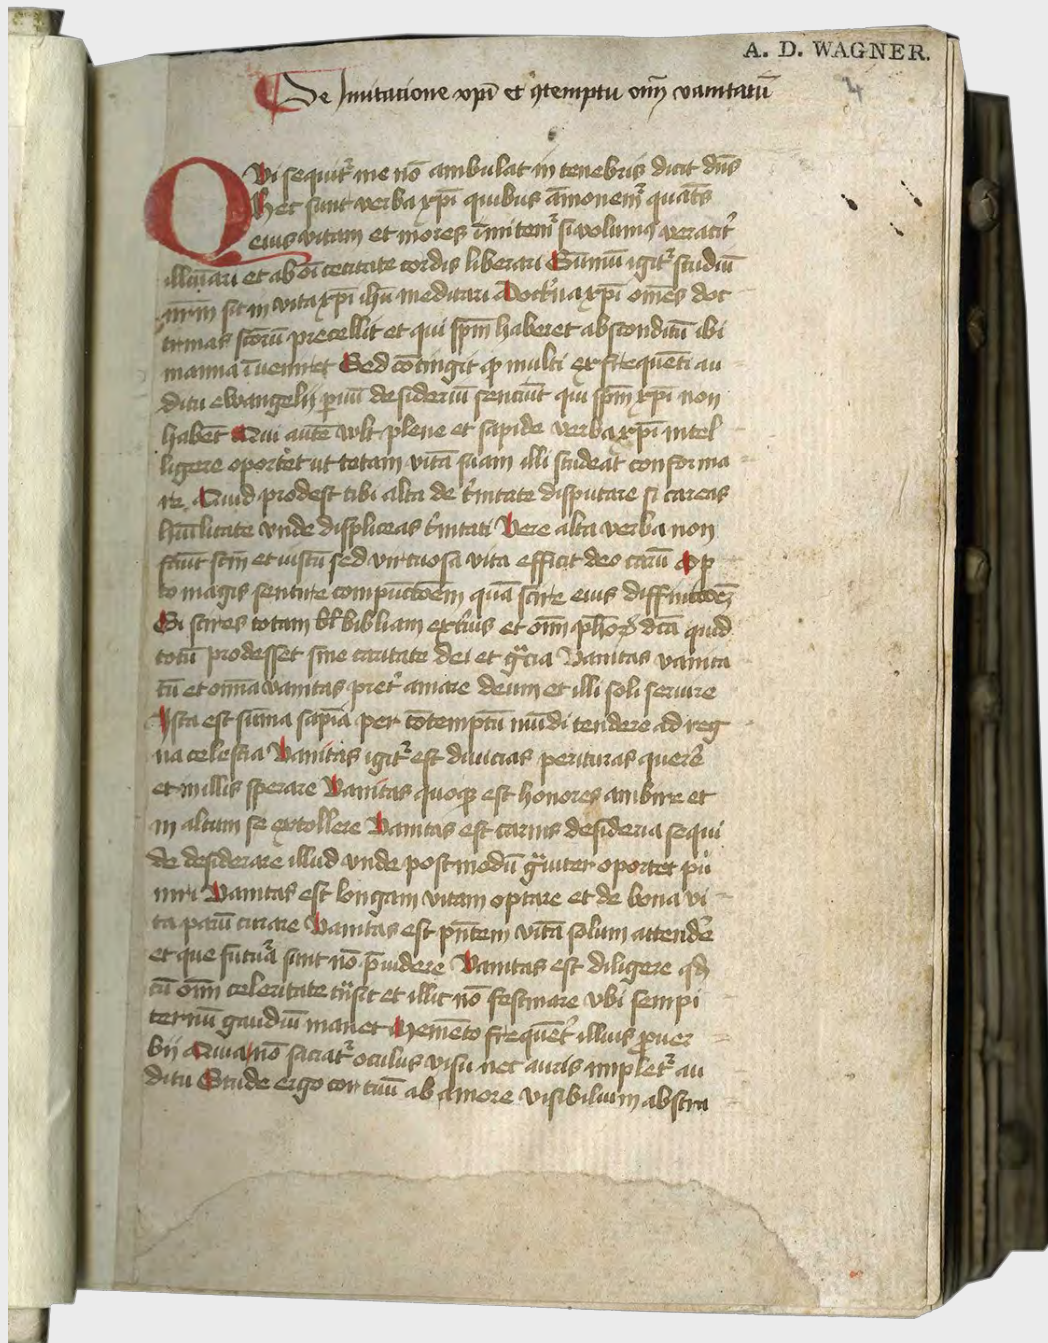 A. D. WAGNER.
De Imitacione xpī et ꝯtemptu om̄ vanitatū
QVi sequit᷑ me nō ambulat in tenebris dicit dn̄s
hec sunt verba xpī quibus āmonem᷑ quāt᷑s
eius vitam et mores īmitem᷑ si volumꝰ veracit᷑
illūiari et ab oī cecitate cordis liberari Summū igit᷑ studiū
nr̄m sit in vita xpī ihū meditari Doct᷑na xpī om̄es doc
trinas sc̄orū precellit et qui sp̄m haberet absconditū ibi
manna īueniret Sed cōtingit ꝙ multi ex frequēti au
ditu ewangelij ꝑuū desideriū senciūt qui sp̄m xpī non
habēt Qui autē vult plene et sapide verba xpī intel
ligere oportet ut totam vitā suam illi studeat conforma
re Quid prodest tibi alta de t᷑nitate disputare si careas
hūilitate vnde displiceas t᷑nitati Vere alta verba non
faciūt sc̄m et iustū sed virtuosa vita efficit deo carū Op
to magis sentire compūctōem quā scire eius diffinicōez
Si scires totam bibliam ext᷑ius et om̄ ph̄oꝝ dc̄a quid
totū prodesset sine caritate dei et gr̄cia Vanitas vanita
tū et om̄ia vanitas pret᷑ amare deum et illi soli seruire
Ista est sūma sapīa per cōtemptū mūdi tendere ad reg
na celestia Vanitas igit᷑ est diuicias perituras querē
et in illis sperare Vanitas quoqꝫ est honores ambire et
in altum se extollere Vanitas est carnis desideria sequi
de desiderare illud vnde postmodū gͣuiter oportet pu
niri Vanitas est longam vitam optare et de bona vi
ta parū curare Vanitas est pn̄tem vitā solum attendē
et que futura sunt nō p̄uidere Vanitas est diligere qd̄
cū om̄i celeritate tn̄sit et illic nō festinare vbi sempi
ternū gaudiū manet Memēto frequēt᷑ illius ꝓuer
bij Quia nō saciat᷑ oculus visu nec auris implet᷑ au
ditu Stude ergo cor tuū ab amore visibilium abstra